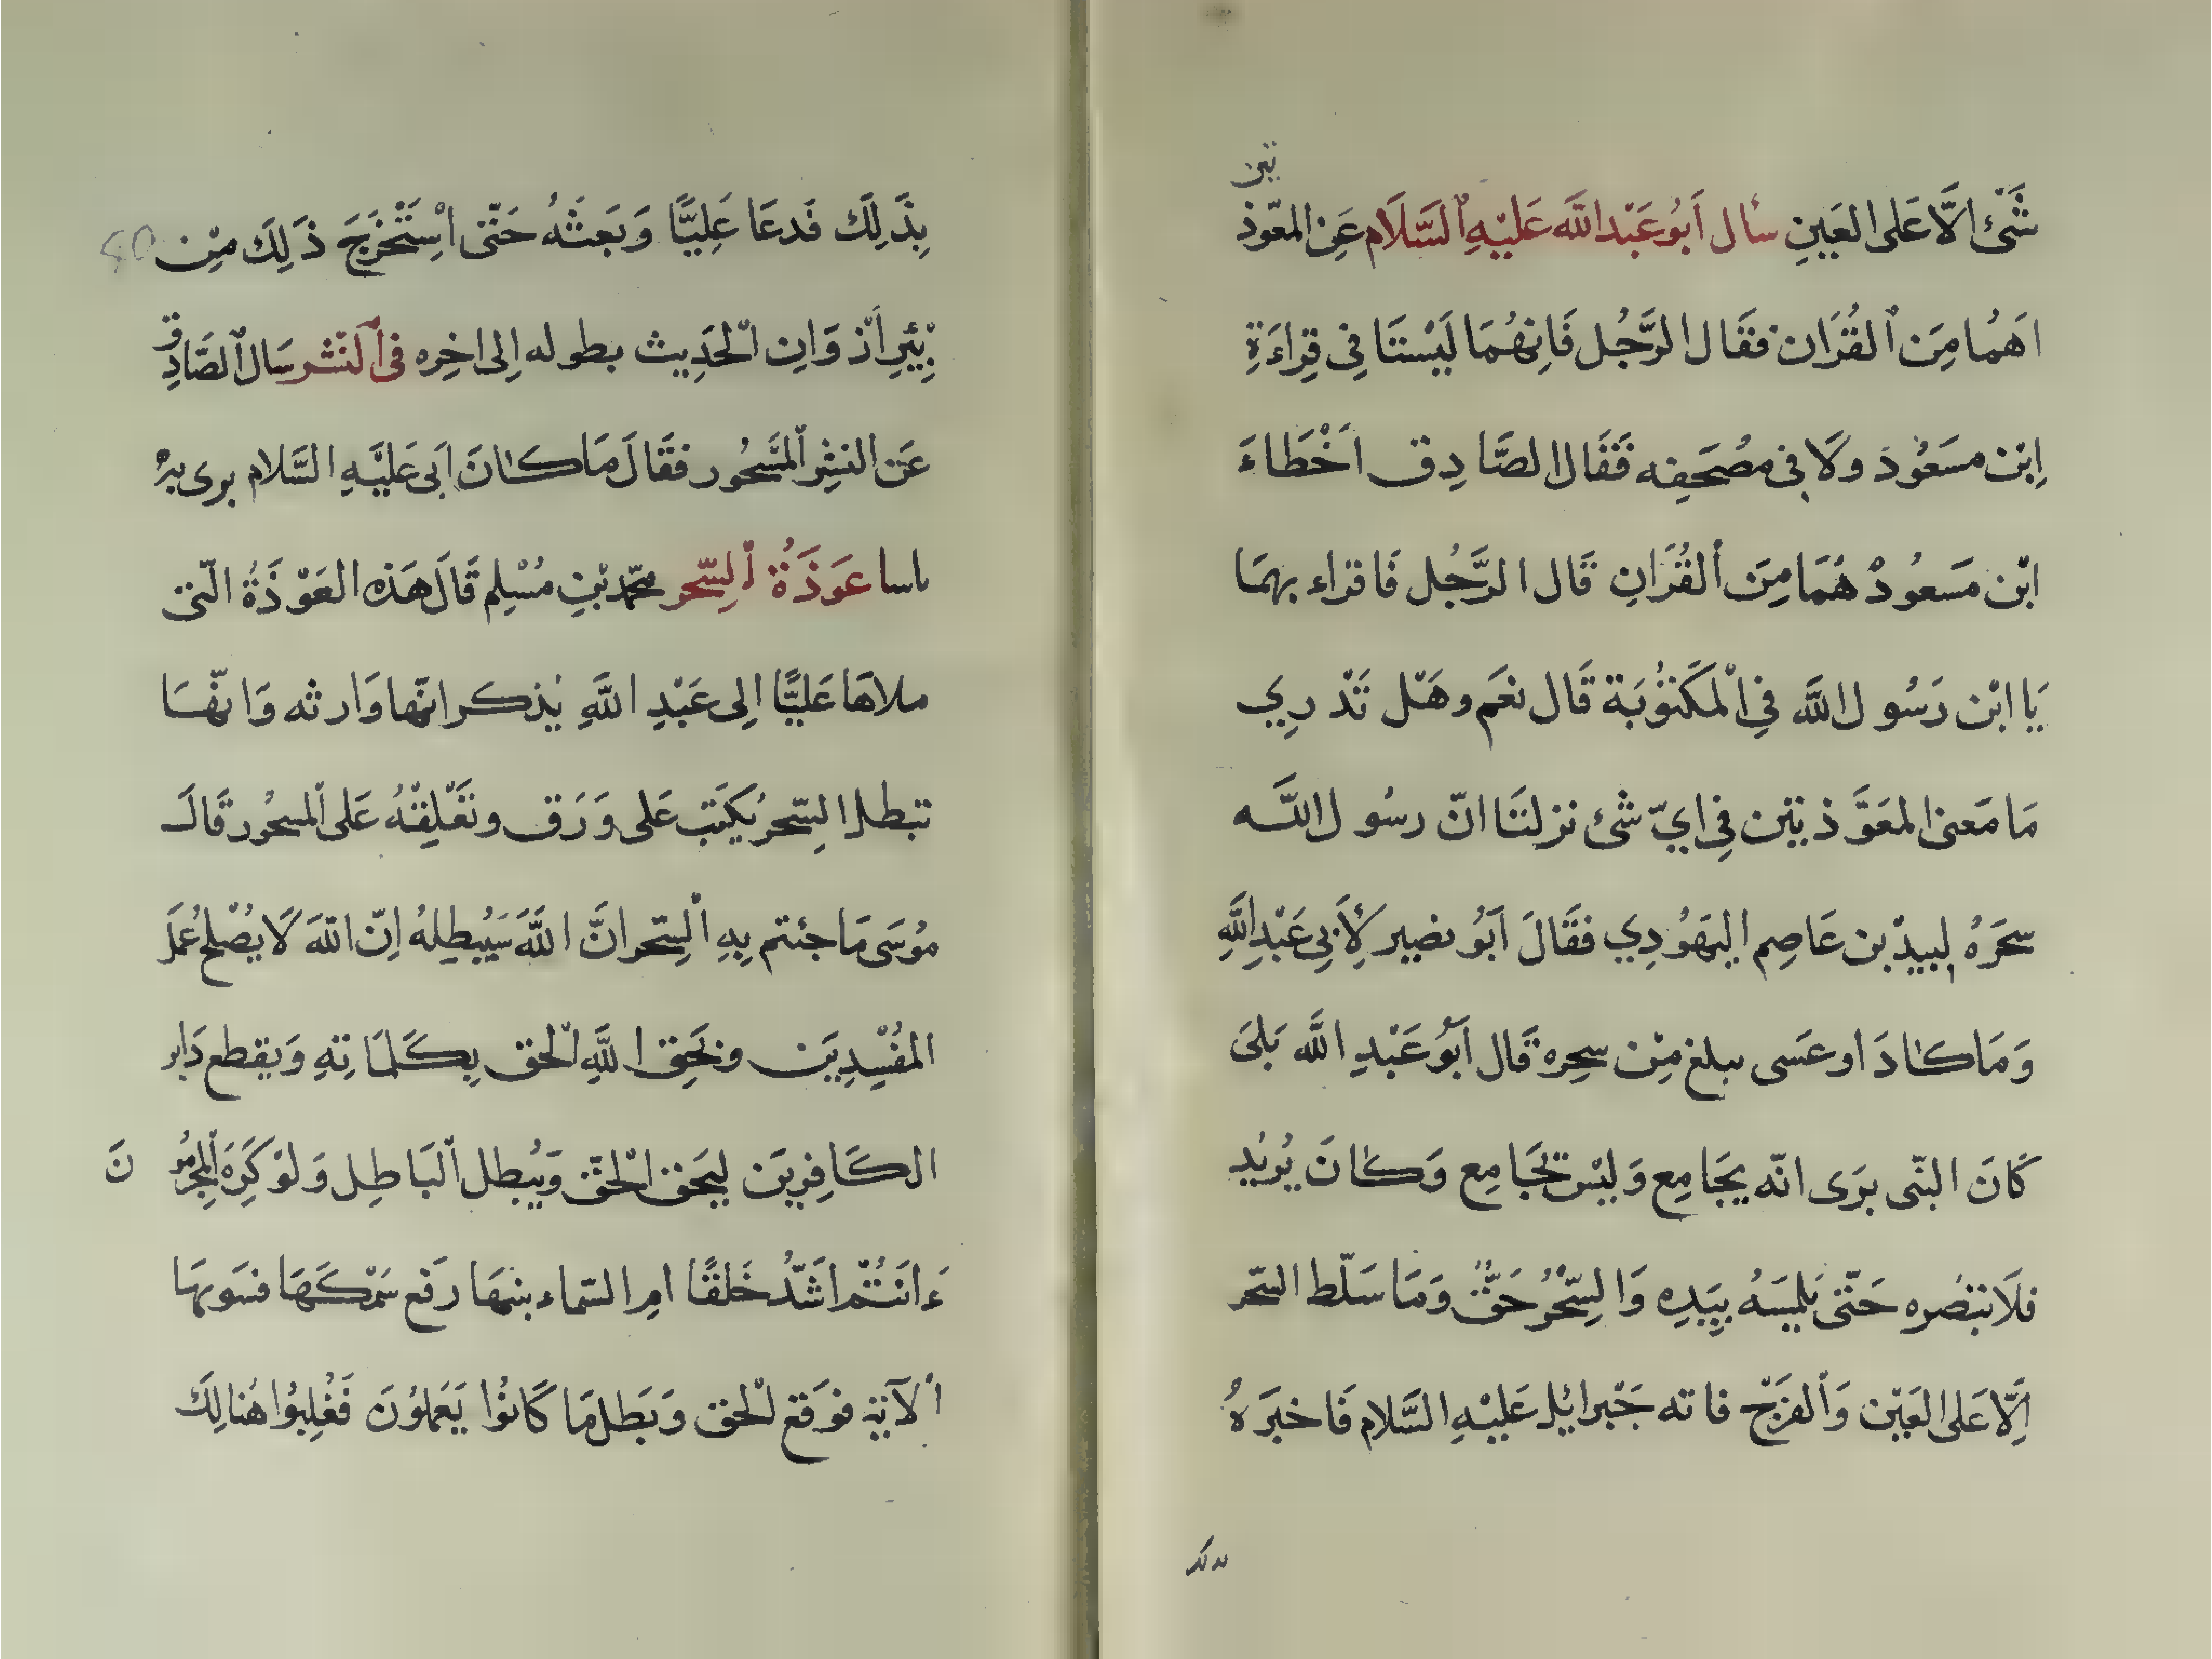 شَئ اِلَّا عَلى العَينِ سأل اَبُو عَبْد اللَّه عَلَيْهِ السَّلَام عَنِ المعّوذ
تين
اَهُمَا مِنَ القُرَان فقَال الرَّجُل فَاِنهُمَا لَيْسَتَا فِي قِرَاءَةِ
اِبْن مسَعُودَ ولَا فى مُصْحَفِه فَقَال الصَّادِق اَخْطَاءَ
ابْن مَسعُودْ هُمَا مِنَ القُرَانِ قَال الرَّجُل فَاقراء بهمَا
يَا ابْن رَسُول اللَّه فِي المَكتُوبَة قَال نعَم وهَل تَدْرِي
مَا مَعنى المعَوَّذتين فِي ايّ شَئ نزلتَا انّ رسُول اللَّه
سحَرَهُ لبيدْ بن عَاصِم اليهَوُدِي فقَالَ اَبُو بصير لِأَبِي عَبْدِ اللَّهِ
وَمَا كَادَ او عسَى يبلغ مِنْ سِحره قَال اَبُو عَبْدِ اللَّه بَلىَ
كَانَ النّبى يَرَى انّه يجَامِع وَليْسَ يجَامِع وَكَانَ يُريُد
فلَا يبْصُره حَتّى يَلمِسَهُ بِيَدِه وَالسِّحْرُ حَقٌّ وَمَا سَلّط السّحر
اِلَّا عَلى العَيْن وَالفَرْج فاته جَبْرائيْل عَليْهِ السَّلام فَاخبَرَهُ
بِذَلِكَ فَدعَا عَلِيًّا وَبَعَثَهُ حَتّى اسْتَخْرَجَ ذَلِكَ مِنْ 40
بِئرِ اَذْوَانِ الحَدِيث بطوله اِلى اخِره فى النّشر سَال الصَّادِق
عَن النشِر المَسْحُور فقَالَ مَا كَانَ اَبى عَليْهِ السَّلام يرى به
باسا عَوذَةُ السِّحر محّمد بْنِ مُسْلِم قَالَ هَذه العَوْذَةُ الّتى
ملاهَا عَليًّا اِلى عَبْدِ اللَّهِ يُذكر انّها وَارثه وَانهّا
تبطل السِّحر يُكَتب عَلى وَرَق ونعَْلِقْهُ عَلى المسحُور قَالَ
مُوسَى مَا جئتم بِهِ السِّحر انَّ اللَّهَ سَيُبطِلهُ اِنّ اللّهَ لَا يُصْلح عَملَ
المفُسْدِيَن ويَحِق اللَّهِ الحق بِكَلمَاتِهِ وَيقطع دَابر
الكَافِريَن ليحَق الحْقّ وَيُبطل البَاطِل وَلَوْ كَرِهَ المُجْرِمُو نَ
ءَ انَتُمْ اشَدُّ خَلقًا امِ السّماء بنيهَا رَفَع سَمْكَهَا فسَويهَا
الآية فوَقَع الحق وَبَطَل مَا كَانوُا يَعَملوُنَ فَغُلِبُوا هُنالِكَ